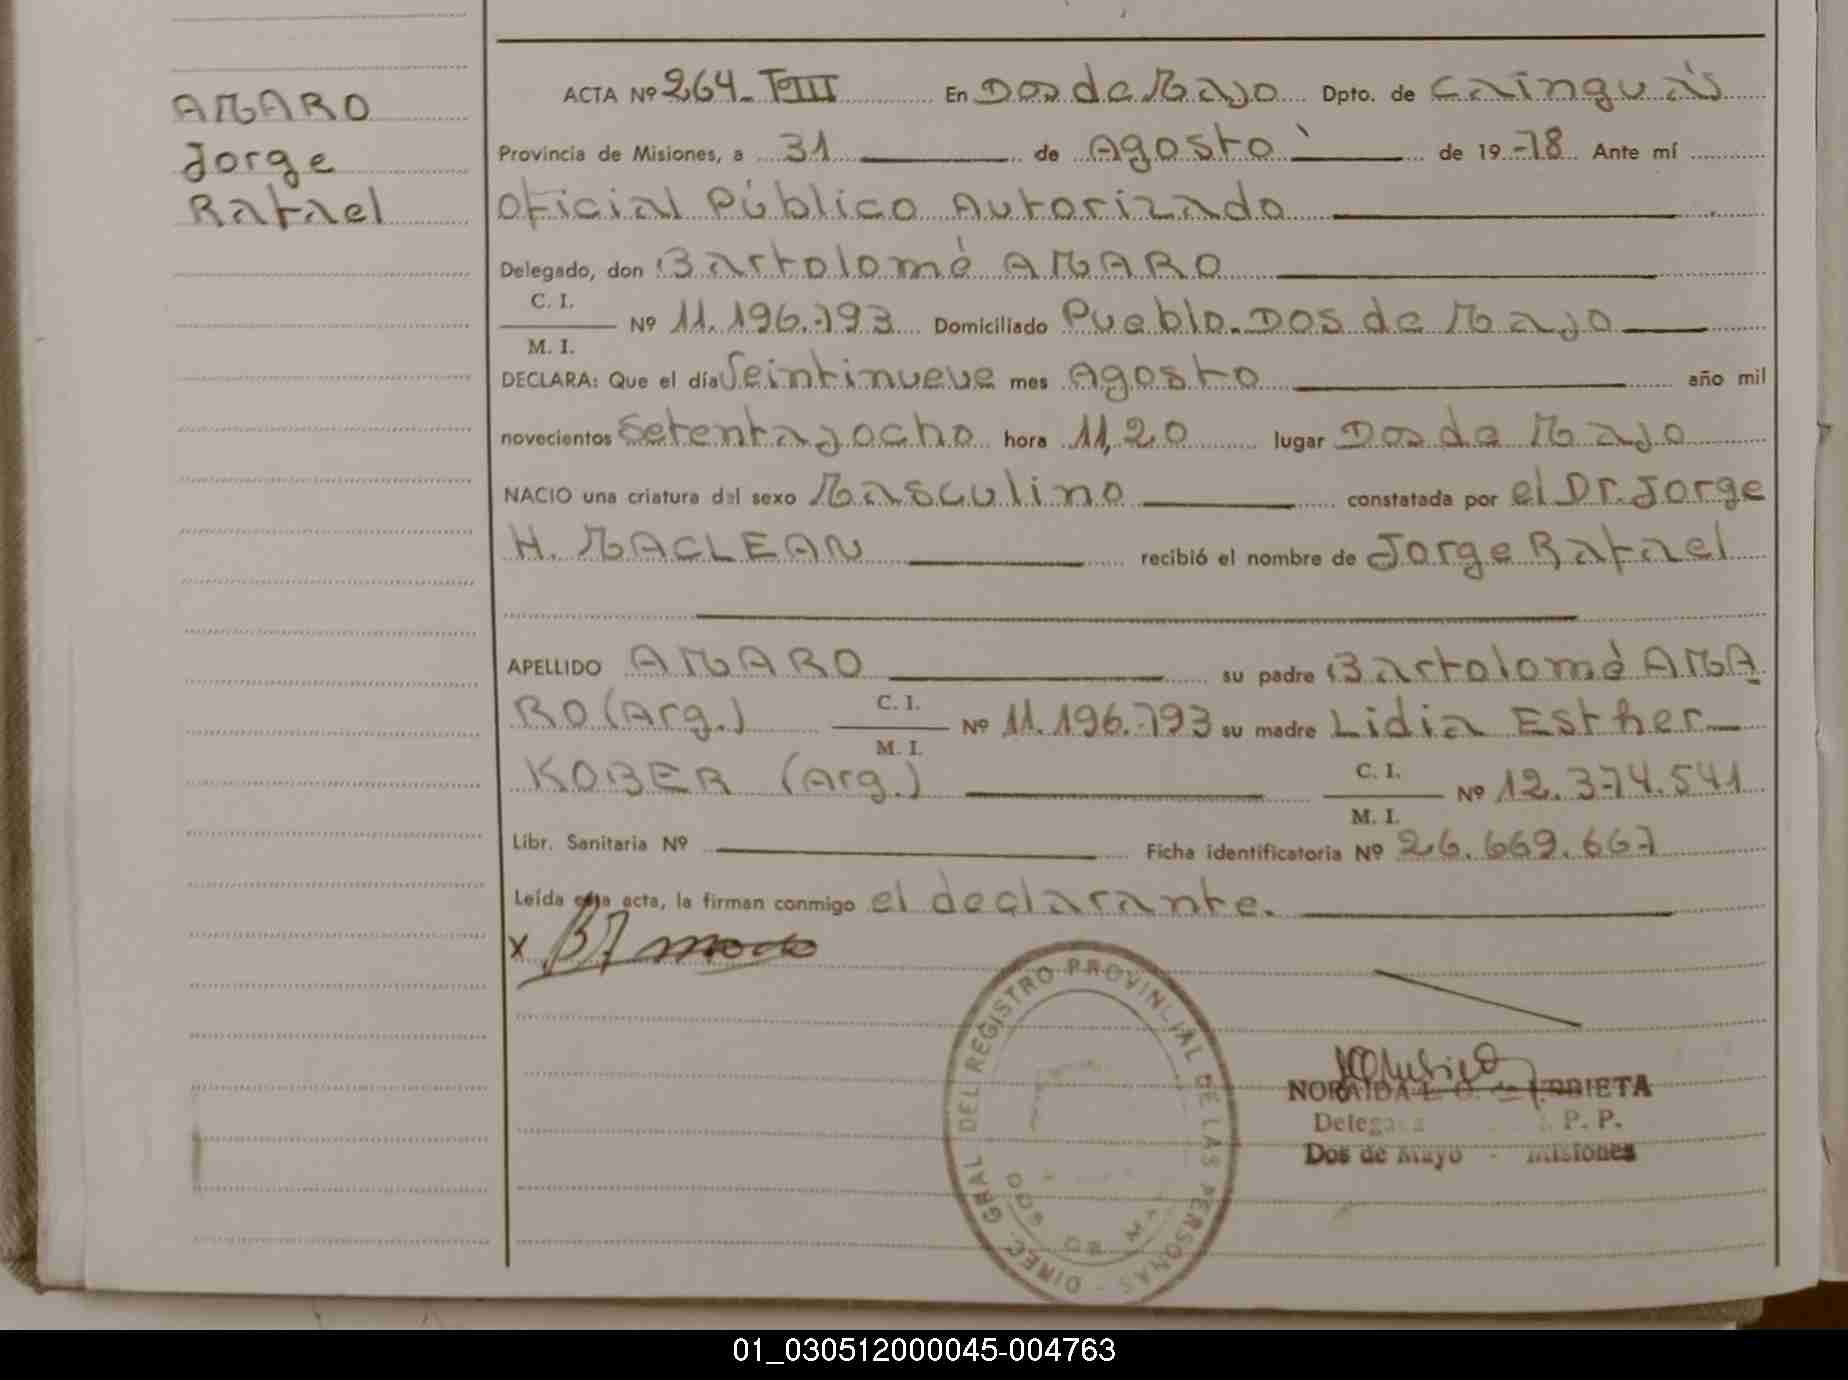 AMARO
Jorge
Rafael
ACTA Nº 264-TºIII En Dos de Mayo Dpto. de Cainguás
Provincia de Misiones, a 31 de Agosto de 19 78 Ante mí
Oficial Público Autorizado
Delegado, don Bartolomé AMARO
C. I.
M. I. Nº 11.196.793 Domiciliado Pueblo Dos de Mayo
DECLARA: Que el día Veintinueve mes Agosto año mil
novecientos Setenta y ocho hora 11,20 lugar Dos de Mayo
NACIO una criatura del sexo Masculino constatada por el Dr. Jorge
H. MACLEAN recibió el nombre de Jorge Rafael
APELLIDO AMARO su padre Bartolomé AMA
RO (Arg.) C. I. M. I. Nº 11.196.793 su madre Lidia Esther
KOBER (Arg.) C. I. M. I. Nº 12.374.541
Libr. Sanitaria Nº Ficha identificatoria Nº 26.669.667
Leída esta acta, la firman conmigo el declarante.
x
DIREC. GRAL DEL REGISTRO PROVINCIAL DE LAS PERSONAS
DOS DE MA
NORAIDA L. O. de
Delegada P. P.
Dos de Mayo - Misiones
01_030512000045-004763